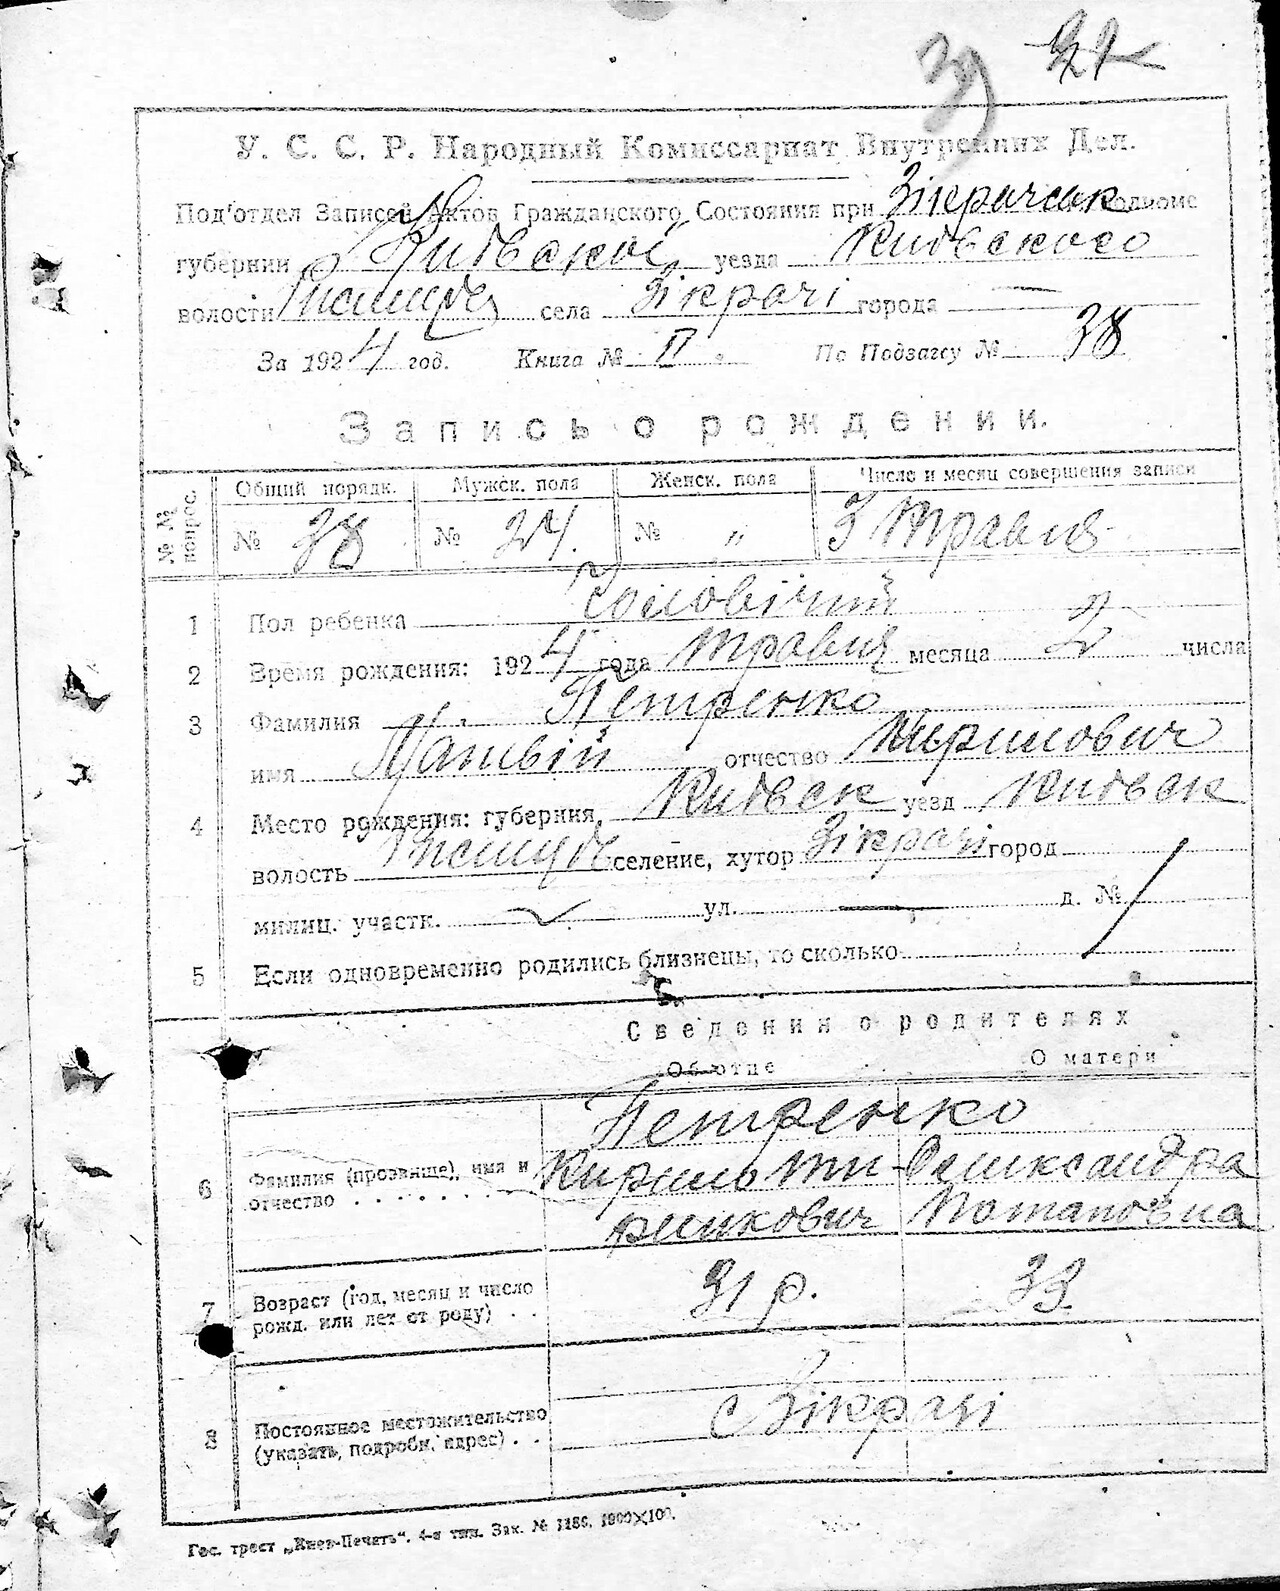 У. С. С. Р. Народный Комиссариат Внутренних Дел.
Под'отдел Записей Актов Гражданского Состояния при Зікрачськ
губернии Київської уезда Київского
волости села Зікрачі города —
За 1924 год. Книга № II По Подзагсу № 38
Запись о рождении.
№ № вопрос. Общий порядк. Мужск. пола Женск. пола Число и месяц совершения записи
№ 38 № 24. № „ 3 травня
1 Пол ребенка Чоловічий
2 Время рождения: 1924 года травня месяца 2 числа
3 Фамилия Петренко
имя Матвій отчество Кирилович
4 Место рождения: губерния, Київськ уезд Київськ
волость селение, хутор Зікрачі город
милиц. участк. ул. — д. №
5 Если одновременно родились близнецы, то сколько
Сведения о родителях
Об отце О матери
Петренко
6 Фамилия (прозвище), имя и отчество Кирило Олександра
Потаповна
7 Возраст (год, месяц и число рожд. или лет от роду) 31 р. 33
8 Постоянное местожительство (указать, подробн. адрес) с Зікрачі
Гос. трест „Киев-Печать". 4-я тип. Зак. № 1000×100.